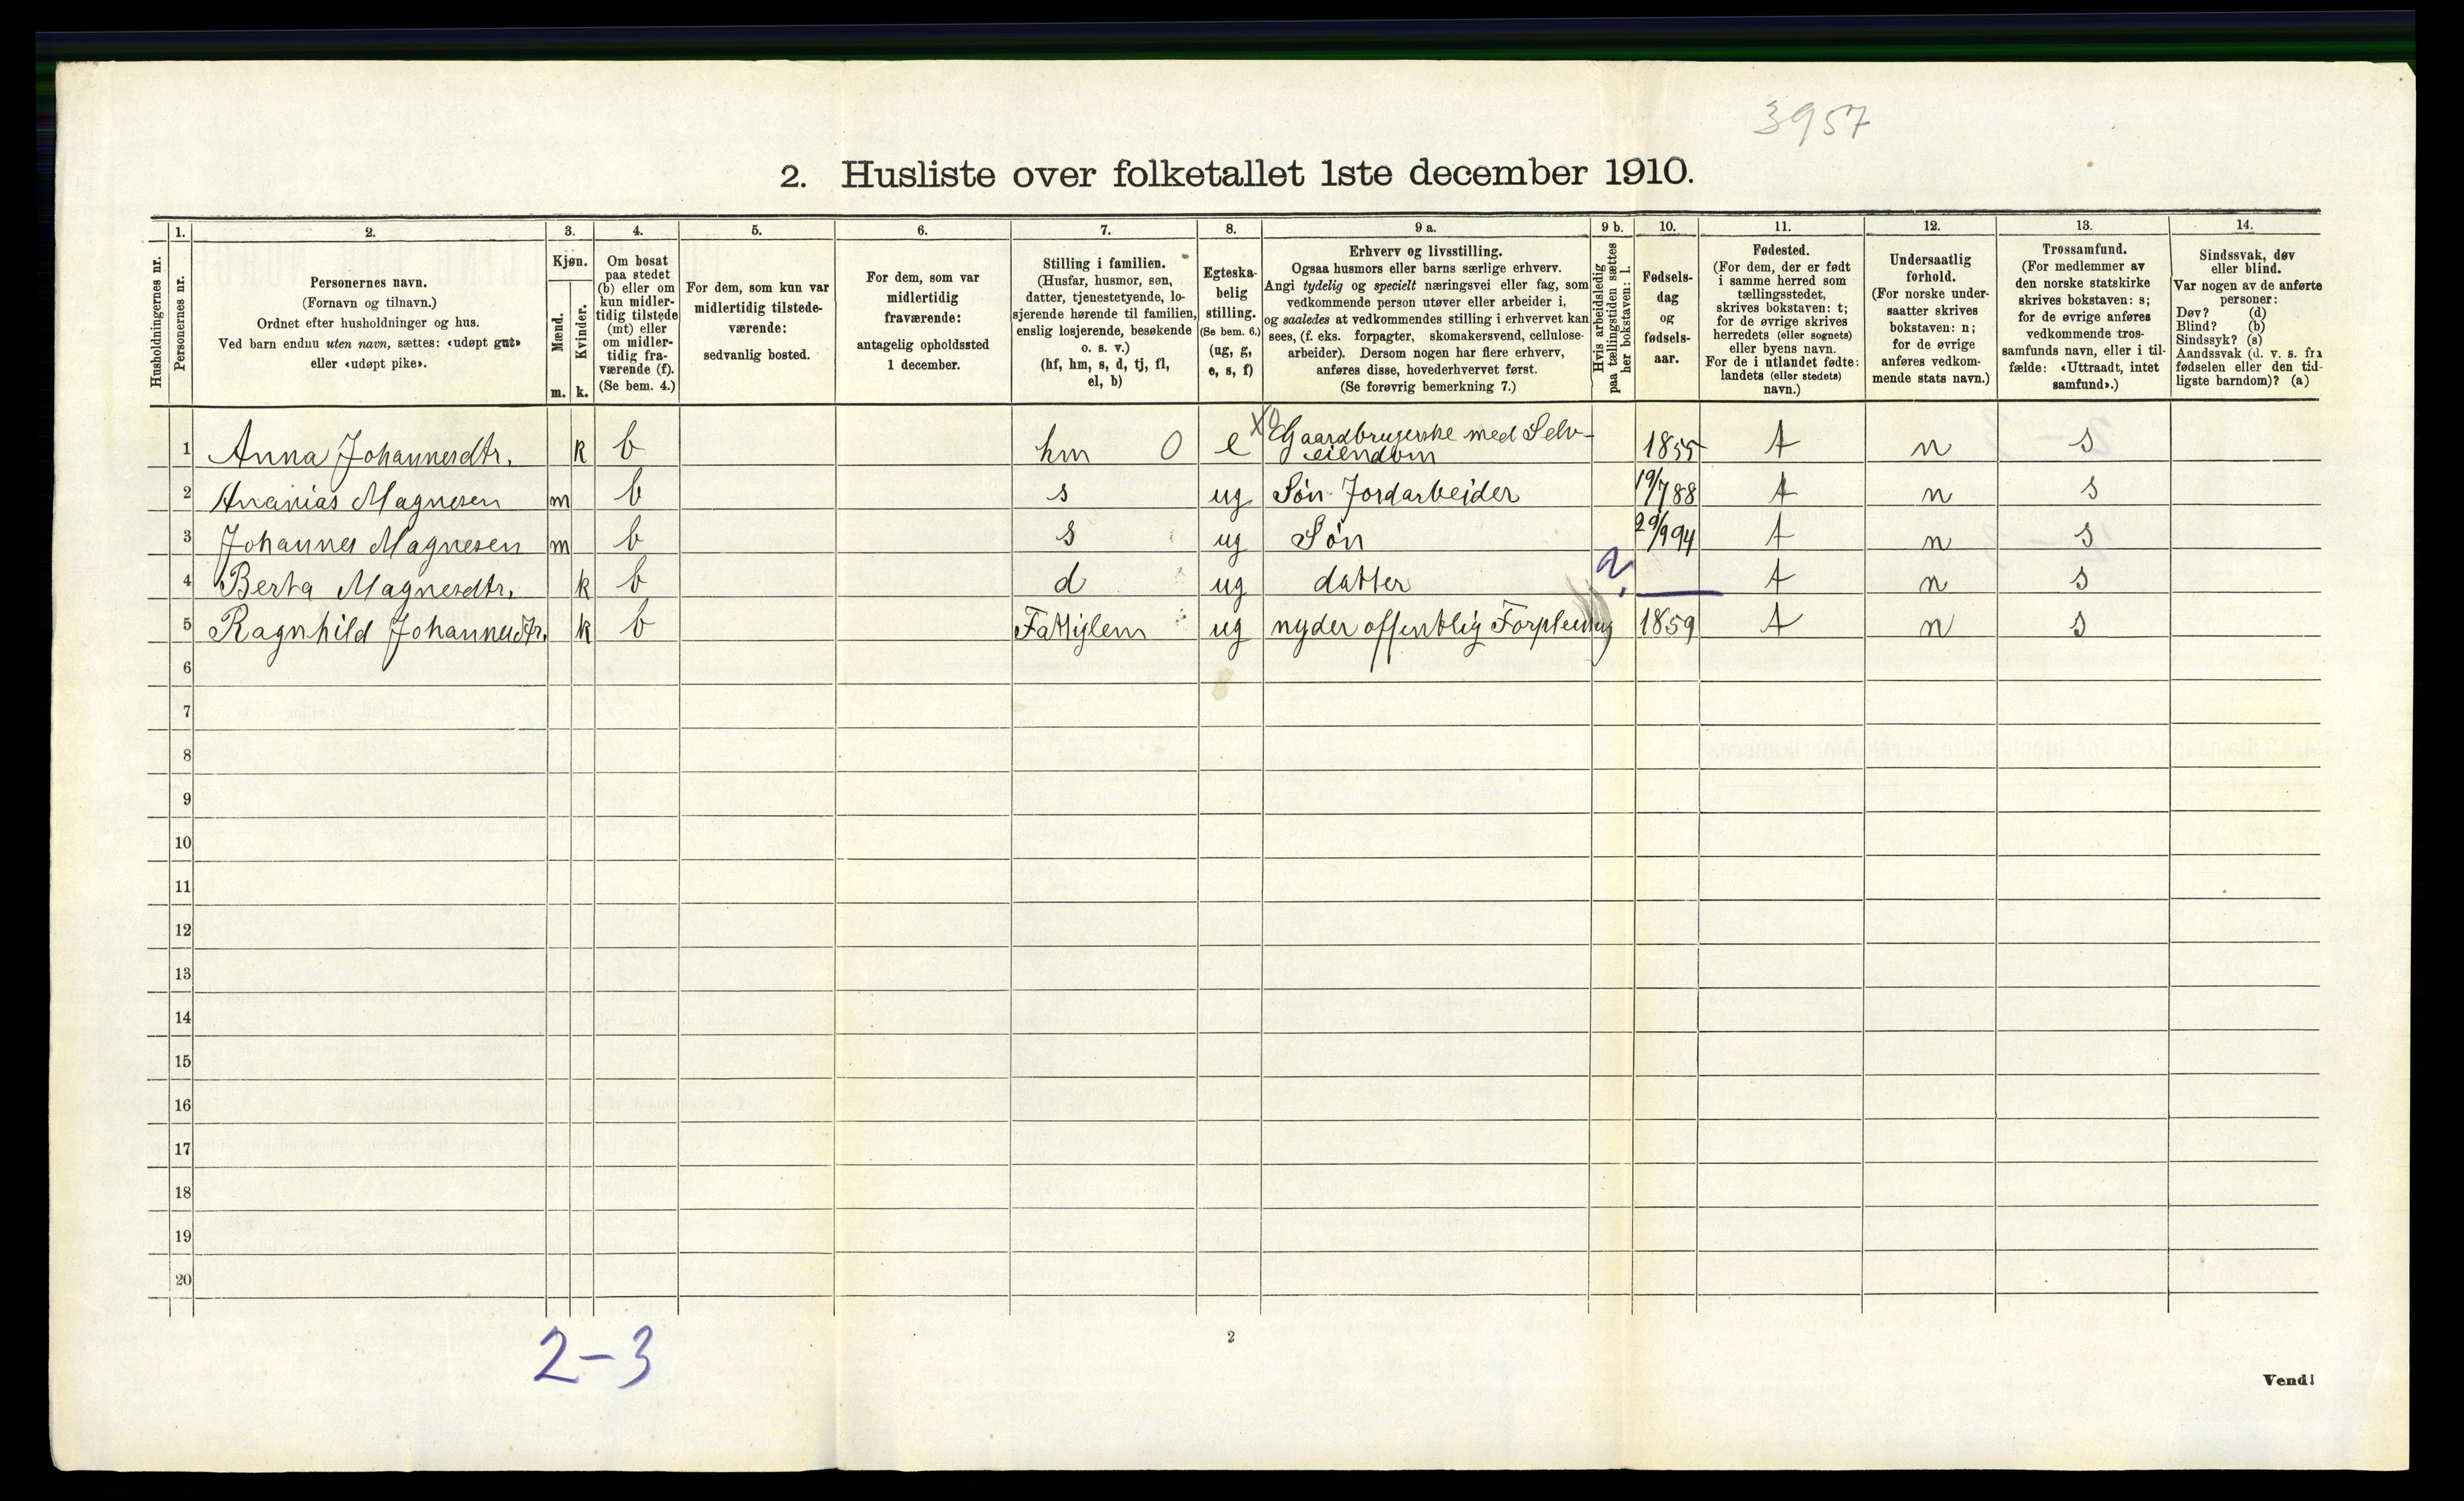 3957
2. Husliste over folketallet 1ste december 1910.
Husholdningernes nr.
1.
Personernes nr.
2.
Personernes navn.
(Fornavn og tilnavn.)
Ordnet efter husholdninger og hus.
Ved barn endnu uten navn, sættes: «udøpt gut»
eller «udøpt pike».
3.
Kjøn.
Mænd.
m.
Kvinder.
k.
4.
Om bosat
paa stedet
(b) eller om
kun midler-
tidig tilstede
(mt) eller
om midler-
tidig fra-
værende (f).
(Se bem. 4.)
5.
For dem, som kun var
midlertidig tilstede-
værende:
sedvanlig bosted.
6.
For dem, som var
midlertidig
fraværende:
antagelig opholdssted
1 december.
7.
Stilling i familien.
(Husfar, husmor, søn,
datter, tjenestetyende, lo-
sjerende hørende til familien,
enslig losjerende, besøkende
o. s. v.)
(hf, hm, s, d, tj, fl,
el, b)
8.
Egteska-
belig
stilling.
(Se bem. 6.)
(ug, g,
e, s, f)
9 a.
Erhverv og livsstilling.
Ogsaa husmors eller barns særlige erhverv.
Angi tydelig og specielt næringsvei eller fag, som
vedkommende person utøver eller arbeider i,
og saaledes at vedkommendes stilling i erhvervet kan
sees, (f. eks. forpagter, skomakersvend, cellulose-
arbeider). Dersom nogen har flere erhverv,
anføres disse, hovederhvervet først.
(Se forøvrig bemerkning 7.)
9 b.
Hvis arbeidsledig
paa tællingstiden sættes
her bokstaven: l.
10.
Fødsels-
dag
og
fødsels-
aar.
11.
Fødested.
(For dem, der er født
i samme herred som
tællingsstedet,
skrives bokstaven: t;
for de øvrige skrives
herredets (eller sognets)
eller byens navn.
For de i utlandet fødte:
landets (eller stedets)
navn.)
12.
Undersaatlig
forhold.
(For norske under-
saatter skrives
bokstaven: n;
for de øvrige
anføres vedkom-
mende stats navn.)
13.
Trossamfund.
(For medlemmer av
den norske statskirke
skrives bokstaven: s;
for de øvrige anføres
vedkommende tros-
samfunds navn, eller i til-
fælde: «Uttraadt, intet
samfund».)
14.
Sindssvak, døv
eller blind.
Var nogen av de anførte
personer:
Døv? (d)
Blind? (b)
Sindssyk? (s)
Aandssvak (d. v. s. fra
fødselen eller den tid-
ligste barndom)? (a)
1 Anna Johannesdtr. k b hm 0 e X0 Gaardbrugerske med Selv-
eiendom 1855 t n s
2 Ananias Magnesen m b s ug Søn Jordarbeider 19/7 88 t n s
3 Johannes Magnesen m b s ug Søn 29/9 94 t n s
4 Berta Magnesdtr. k b d ug datter ? — t n s
5 Ragnhild Johannesdtr. k b Fattiglem ug nyder offentlig Forpleining 1859 t n s
6
7
8
9
10
11
12
13
14
15
16
17
18
19
20
2-3
2
Vend!